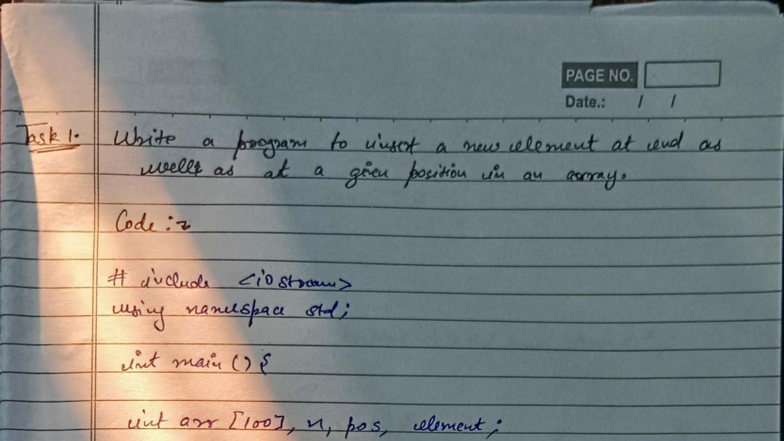 PAGE NO.
Date.: / /
Task 1. Write a program to insert a new element at end as
wells as at a given position in an array.
Code :-
# include <iostream>
using namespace std;
int main () {
int arr [100], n, pos, element;